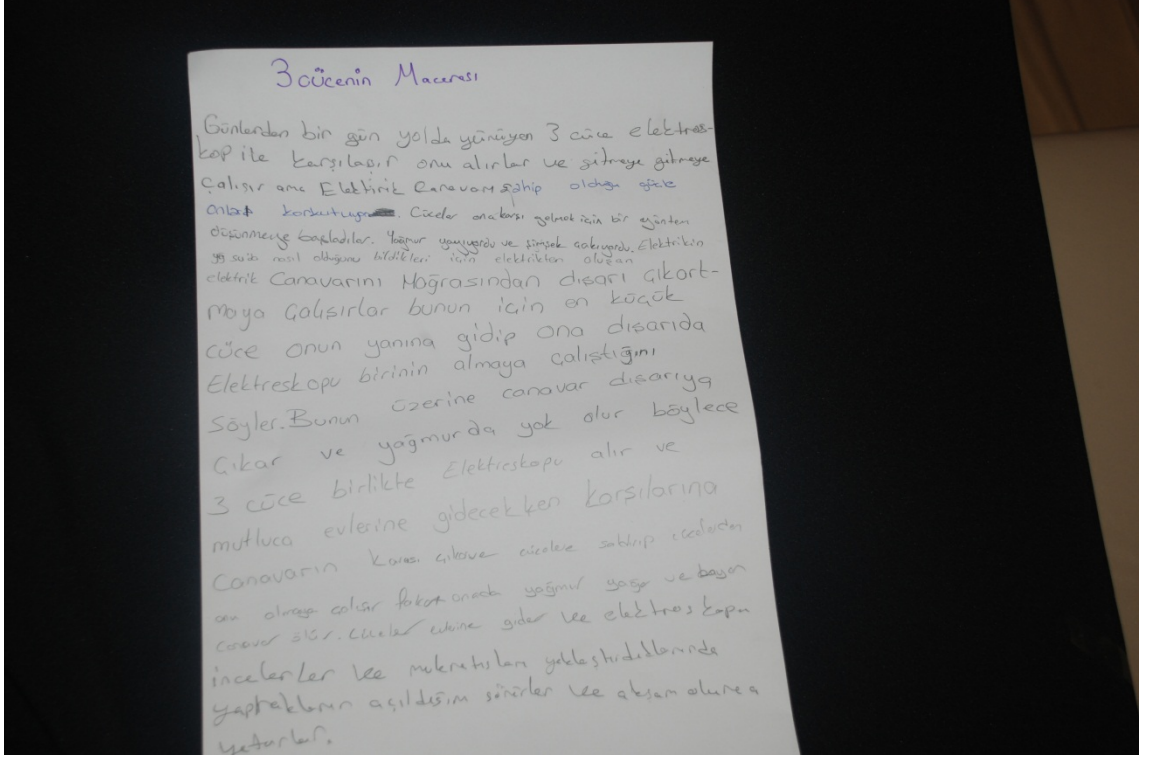 3 cücenin Macerası
Günlerden bir gün yolda yürüyen 3 cüce elektros-
kop ile karşılaşır onu alırlar ve gitmeye gitmeye
Çalışır ama Elektirik Canavarı sahip olduğu güçle
onları korkutuyor. Cüceler ona karşı gelmek için bir yöntem
düşünmeye başladılar. Yağmur yağıyordu ve şimşek çakıyordu. Elektrikin
nasıl olduğunu bildikleri için elektrikten oluşan
elektrik Canavarını Mağrasından dışarı çıkart-
maya çalışırlar bunun için en küçük
cüce onun yanına gidip ona dışarıda
Elektreskopu birinin almaya çalıştığını
Söyler. Bunun üzerine canavar dışarıya
Çıkar ve yağmurda yok olur böylece
3 cüce birlikte Elektreskopu alır ve
mutluca evlerine gidecekken karşılarına
Canavarın karısı çıkar ve cücelere saldırıp cücelerden
onu almaya çalışır fakat anada yağmur yağar ve bayan
canavar ölür. Cüceler evine gider ve elektroskopu
incelerler ve mıknatısları yaklaştırdıklarında
yaprakların açıldığını görürler ve akşam olunca
yatarlar.